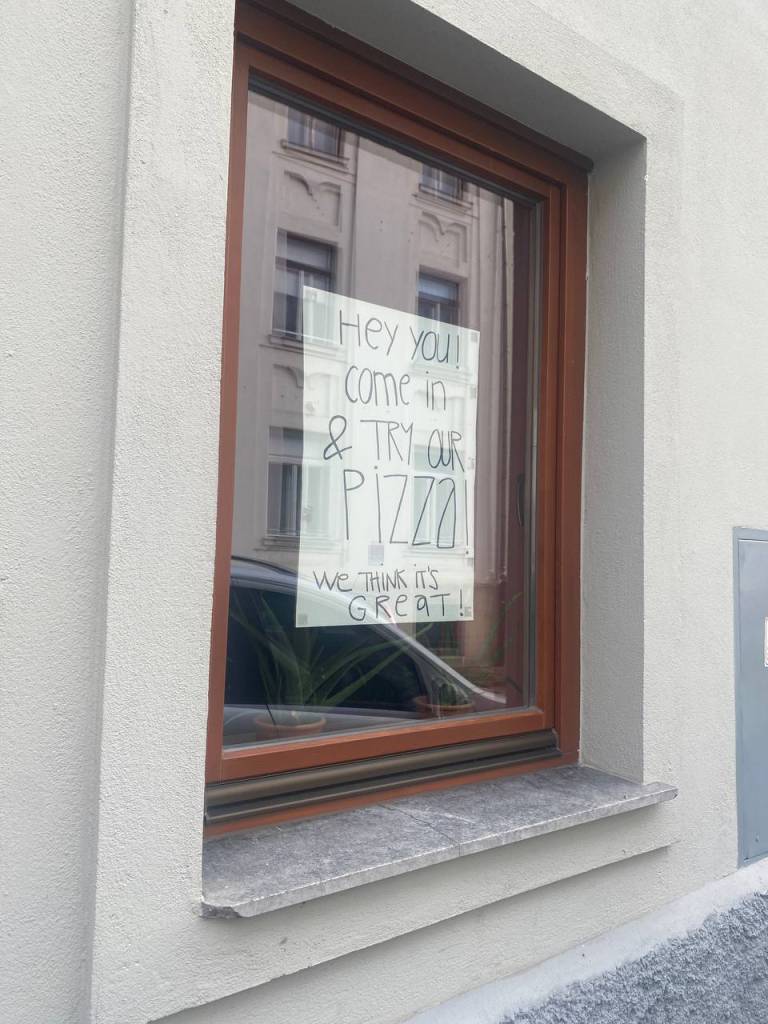 Hey you!
come in
& TRY OUR
PizzA!
We THiNK iT'S
GReaT!